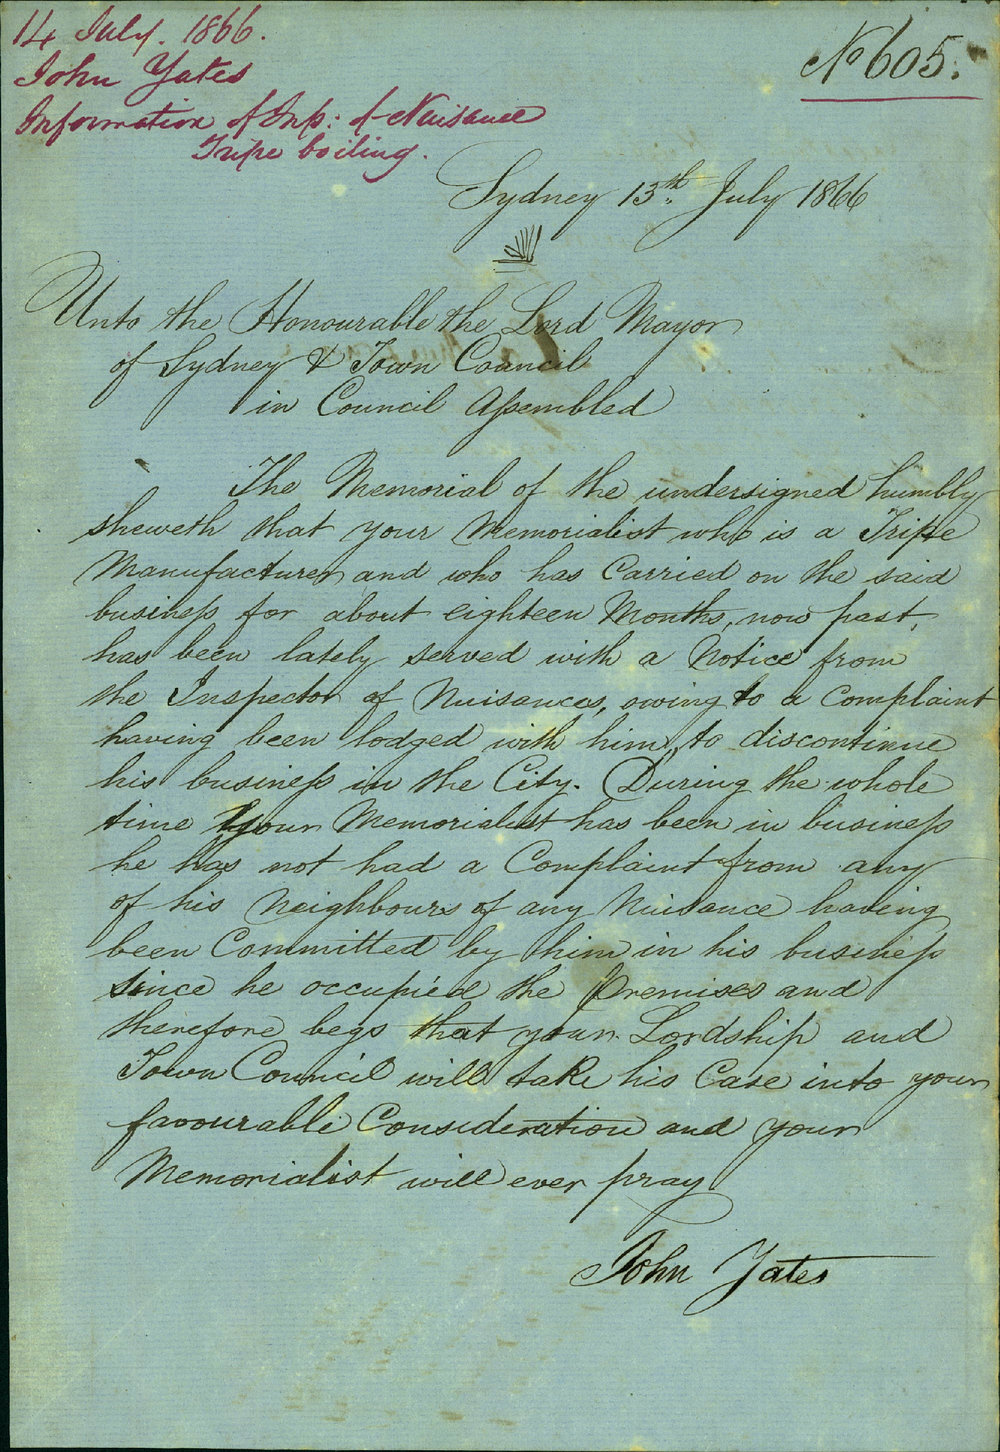 14 July. 1866.
John Yates
Information of Insp: of Nuisance
Tripe boiling.
No 605.
Sydney 13th. July 1866
Unto the Honourable the Lord Mayor
of Sydney & Town Council
in Council Assembled
The Memorial of the undersigned humbly
sheweth that your Memorialist who is a Tripe
Manufacturer and who has Carried on the said
business for about eighteen Months, now past,
has been lately served with a Notice from
the Inspector of Nuisances, owing to a Complaint
having been lodged with him, to discontinue
his business in the City. During the whole
time your Memorialist has been in business
he has not had a Complaint from any
of his Neighbours of any Nuisance having
been Committed by him in his business
since he occupied the Premises and
therefore begs that your Lordship and
Town Council will take his Case into your
favourable Consideration and your
Memorialist will ever pray
John Yates